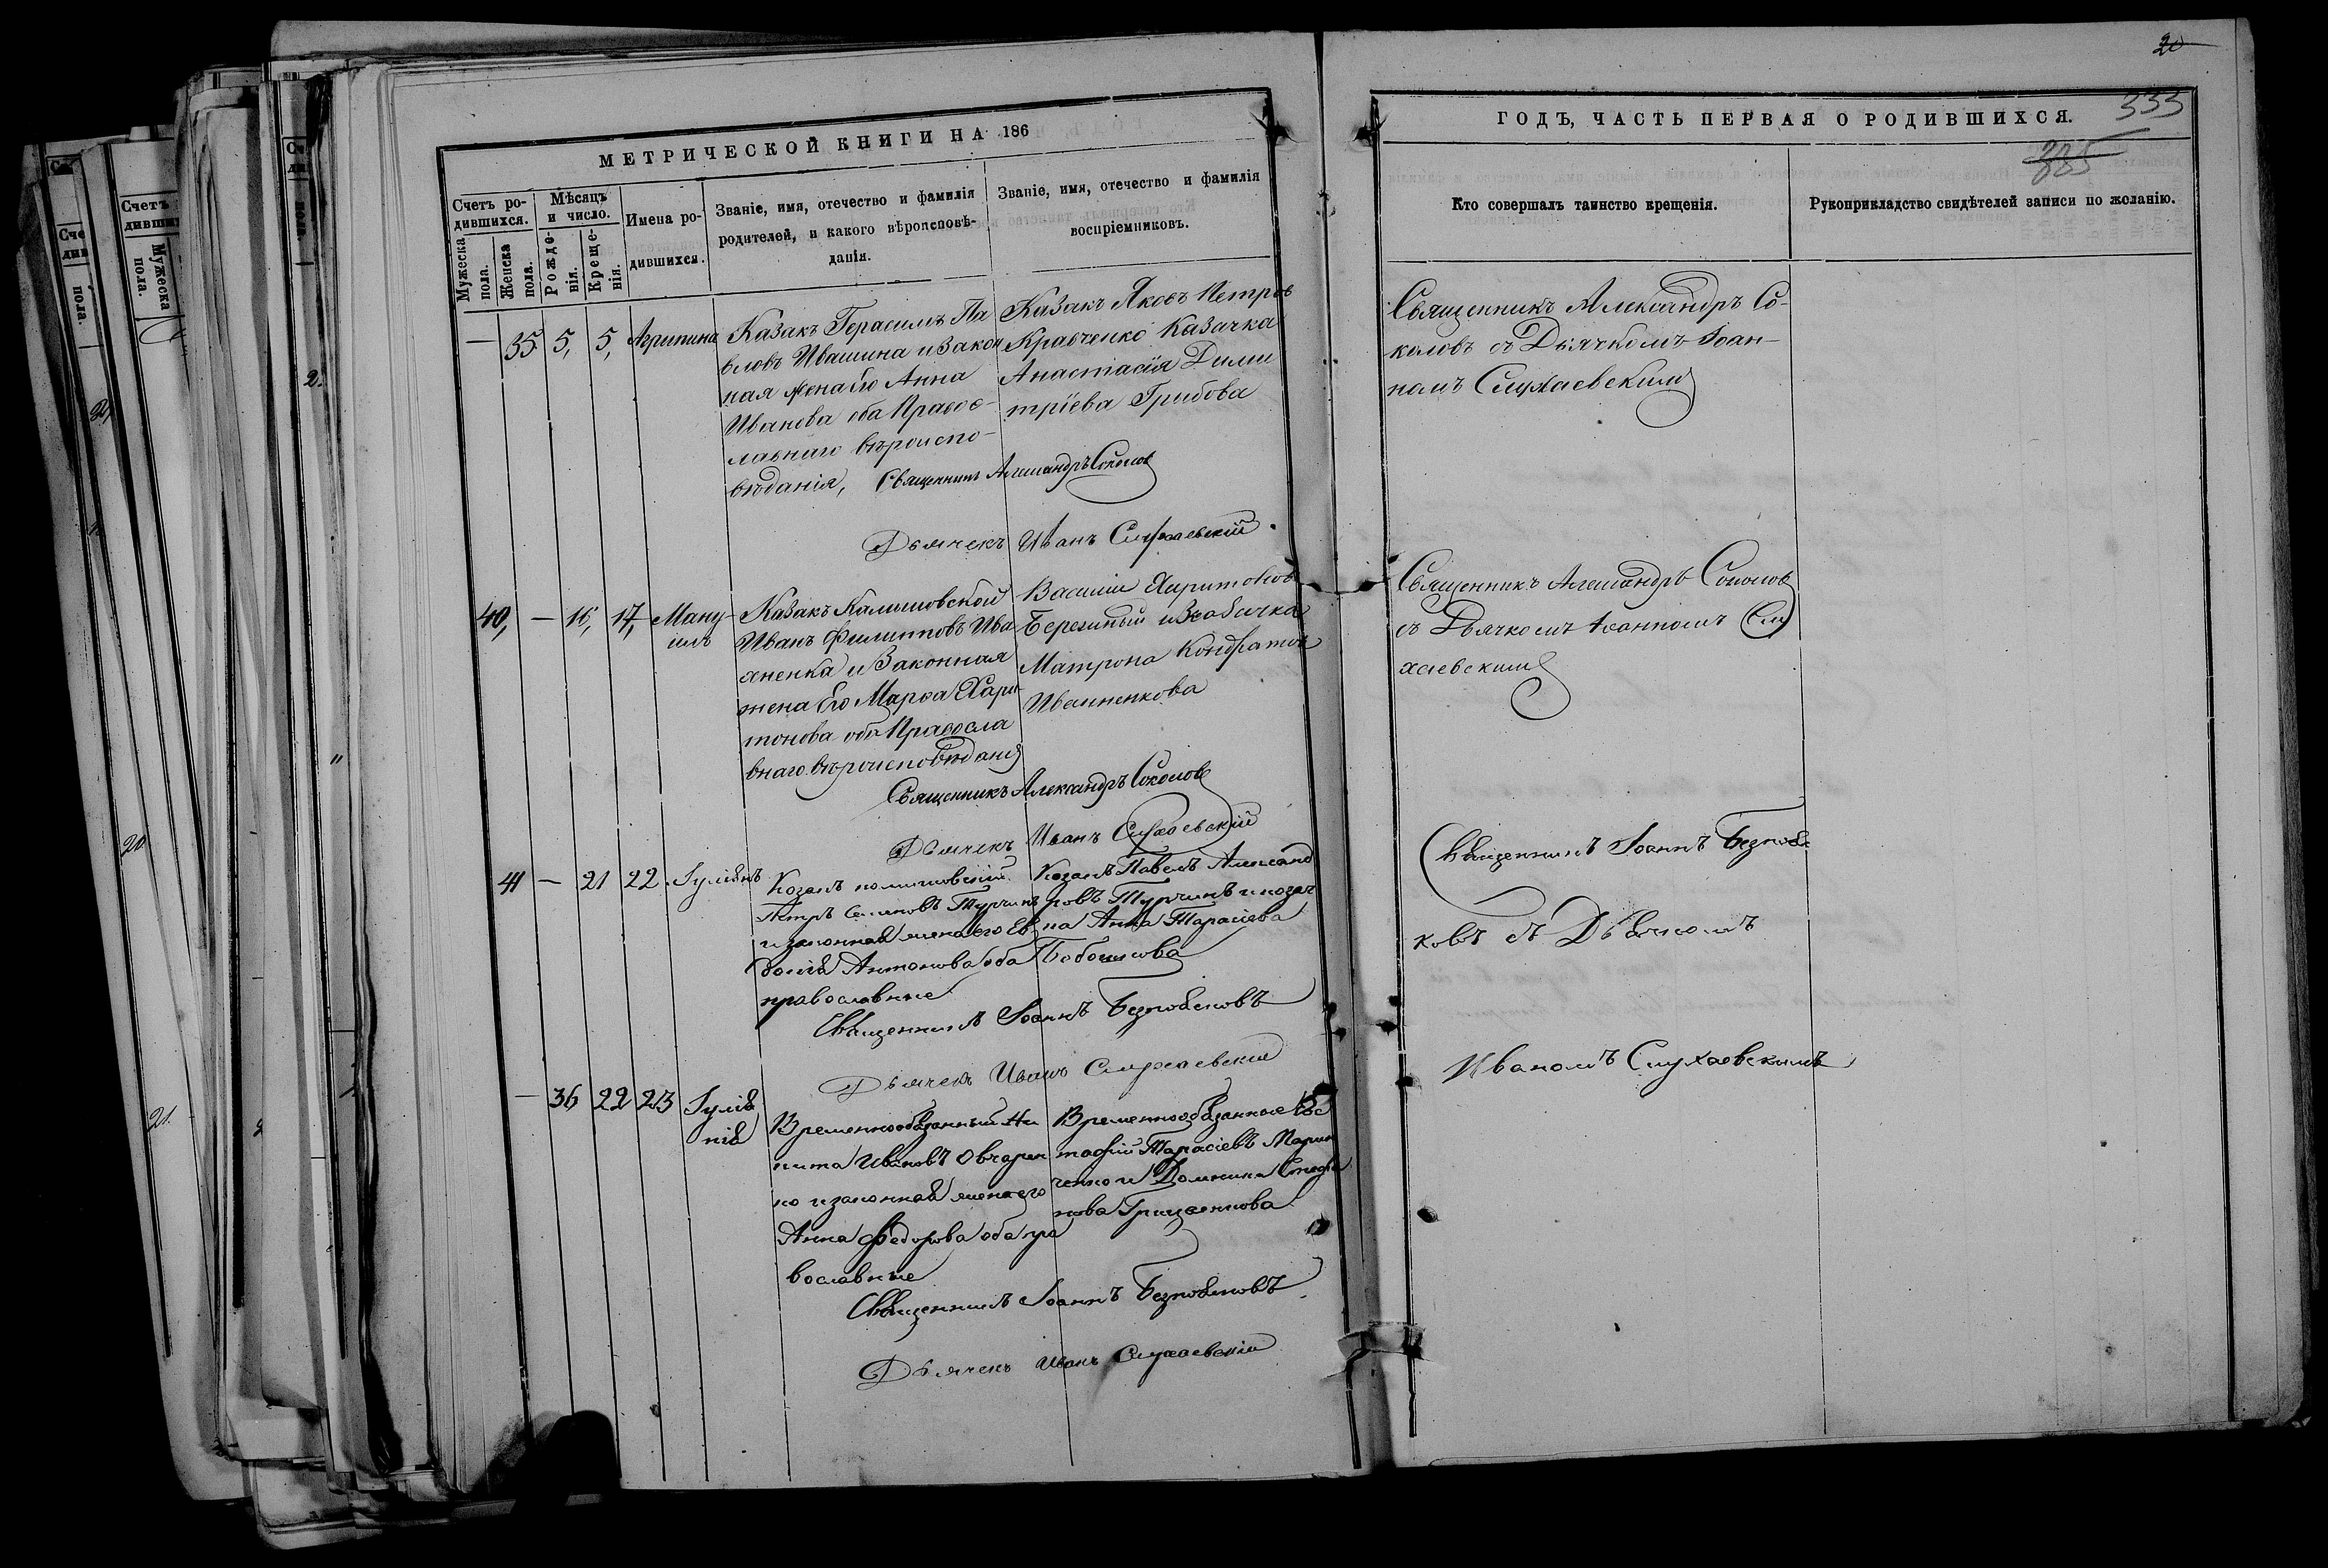 МЕТРИЧЕСКОЙ КНИГИ НА 186
Счетъ ро-
дившихся.
Мужеска
пола.
Женска
пола.
Мѣсяцъ
и число.
Рожде-
нія.
Креще-
нія.
Имена ро-
дившихся.
Званіе, имя, отечество и фамилія
родителей, и какого вѣроисповѣ-
данія.
Званіе, имя, отечество и фамилія
воспріемниковъ.
— 35 5, 5, Агрипина
Казакъ Герасимъ Па
вловъ Ивашина и закон
ная жена его Анна
Иванова оба Правос-
лавнаго вѣроиспо-
вѣданія,
Казакъ Яковъ Петров
Кравченко Казачка
Анастасія Дими
тріева Грибова
Священникъ Александръ Соколов
Дьячекъ Иванъ Слухаевскій
40, — 16, 17, Ману-
илъ
Казакъ
Иванъ Филипповъ Ива
хненка и Законная
жена Его Марѳа Хари
тонова оба Правосла
внаго вѣроисповѣдані
Василій Харитонов
Матрона Кондратов
Иваненкова
Священникъ Александръ Соколов
Дьячекъ Иванъ Слухаевскій
41 — 21 22 Іуліанъ
Козакъ
Петръ Семеновъ Турчинъ
и законная жена его Ев
докія Антонова оба
православные
Козакъ Павелъ Александ
ровъ Турчинъ и козач
ка Анна Тарасіева
Священникъ Іоаннъ
Дьячекъ Иванъ Слухаевскій
— 36 22 23 Іуліа
нія
Временнообязанный Ни
кита Ивановъ Овчарен
ко и законная жена его
Анна Федорова оба пра
вославные
Временнообязанные Ев
тафій Тарасіевъ Марин
ченко и Домникія Стефа
нова Грищенкова
Священникъ Іоаннъ
Дьячекъ Иванъ Слухаевскій
20
333
385
ГОДЪ, ЧАСТЬ ПЕРВАЯ О РОДИВШИХСЯ.
Кто совершалъ таинство крещенія.
Рукоприкладство свидѣтелей записи по желанію.
Священникъ Александръ Со-
коловъ съ Дьячкомъ Іоан-
номъ Слухаевскимъ
Священникъ Александръ Соколов
съ Дьячкомъ Іоанномъ Слу
хаевскимъ
Священникъ Іоаннъ
ковъ съ Дьячкомъ
Иваномъ Слухаевскимъ